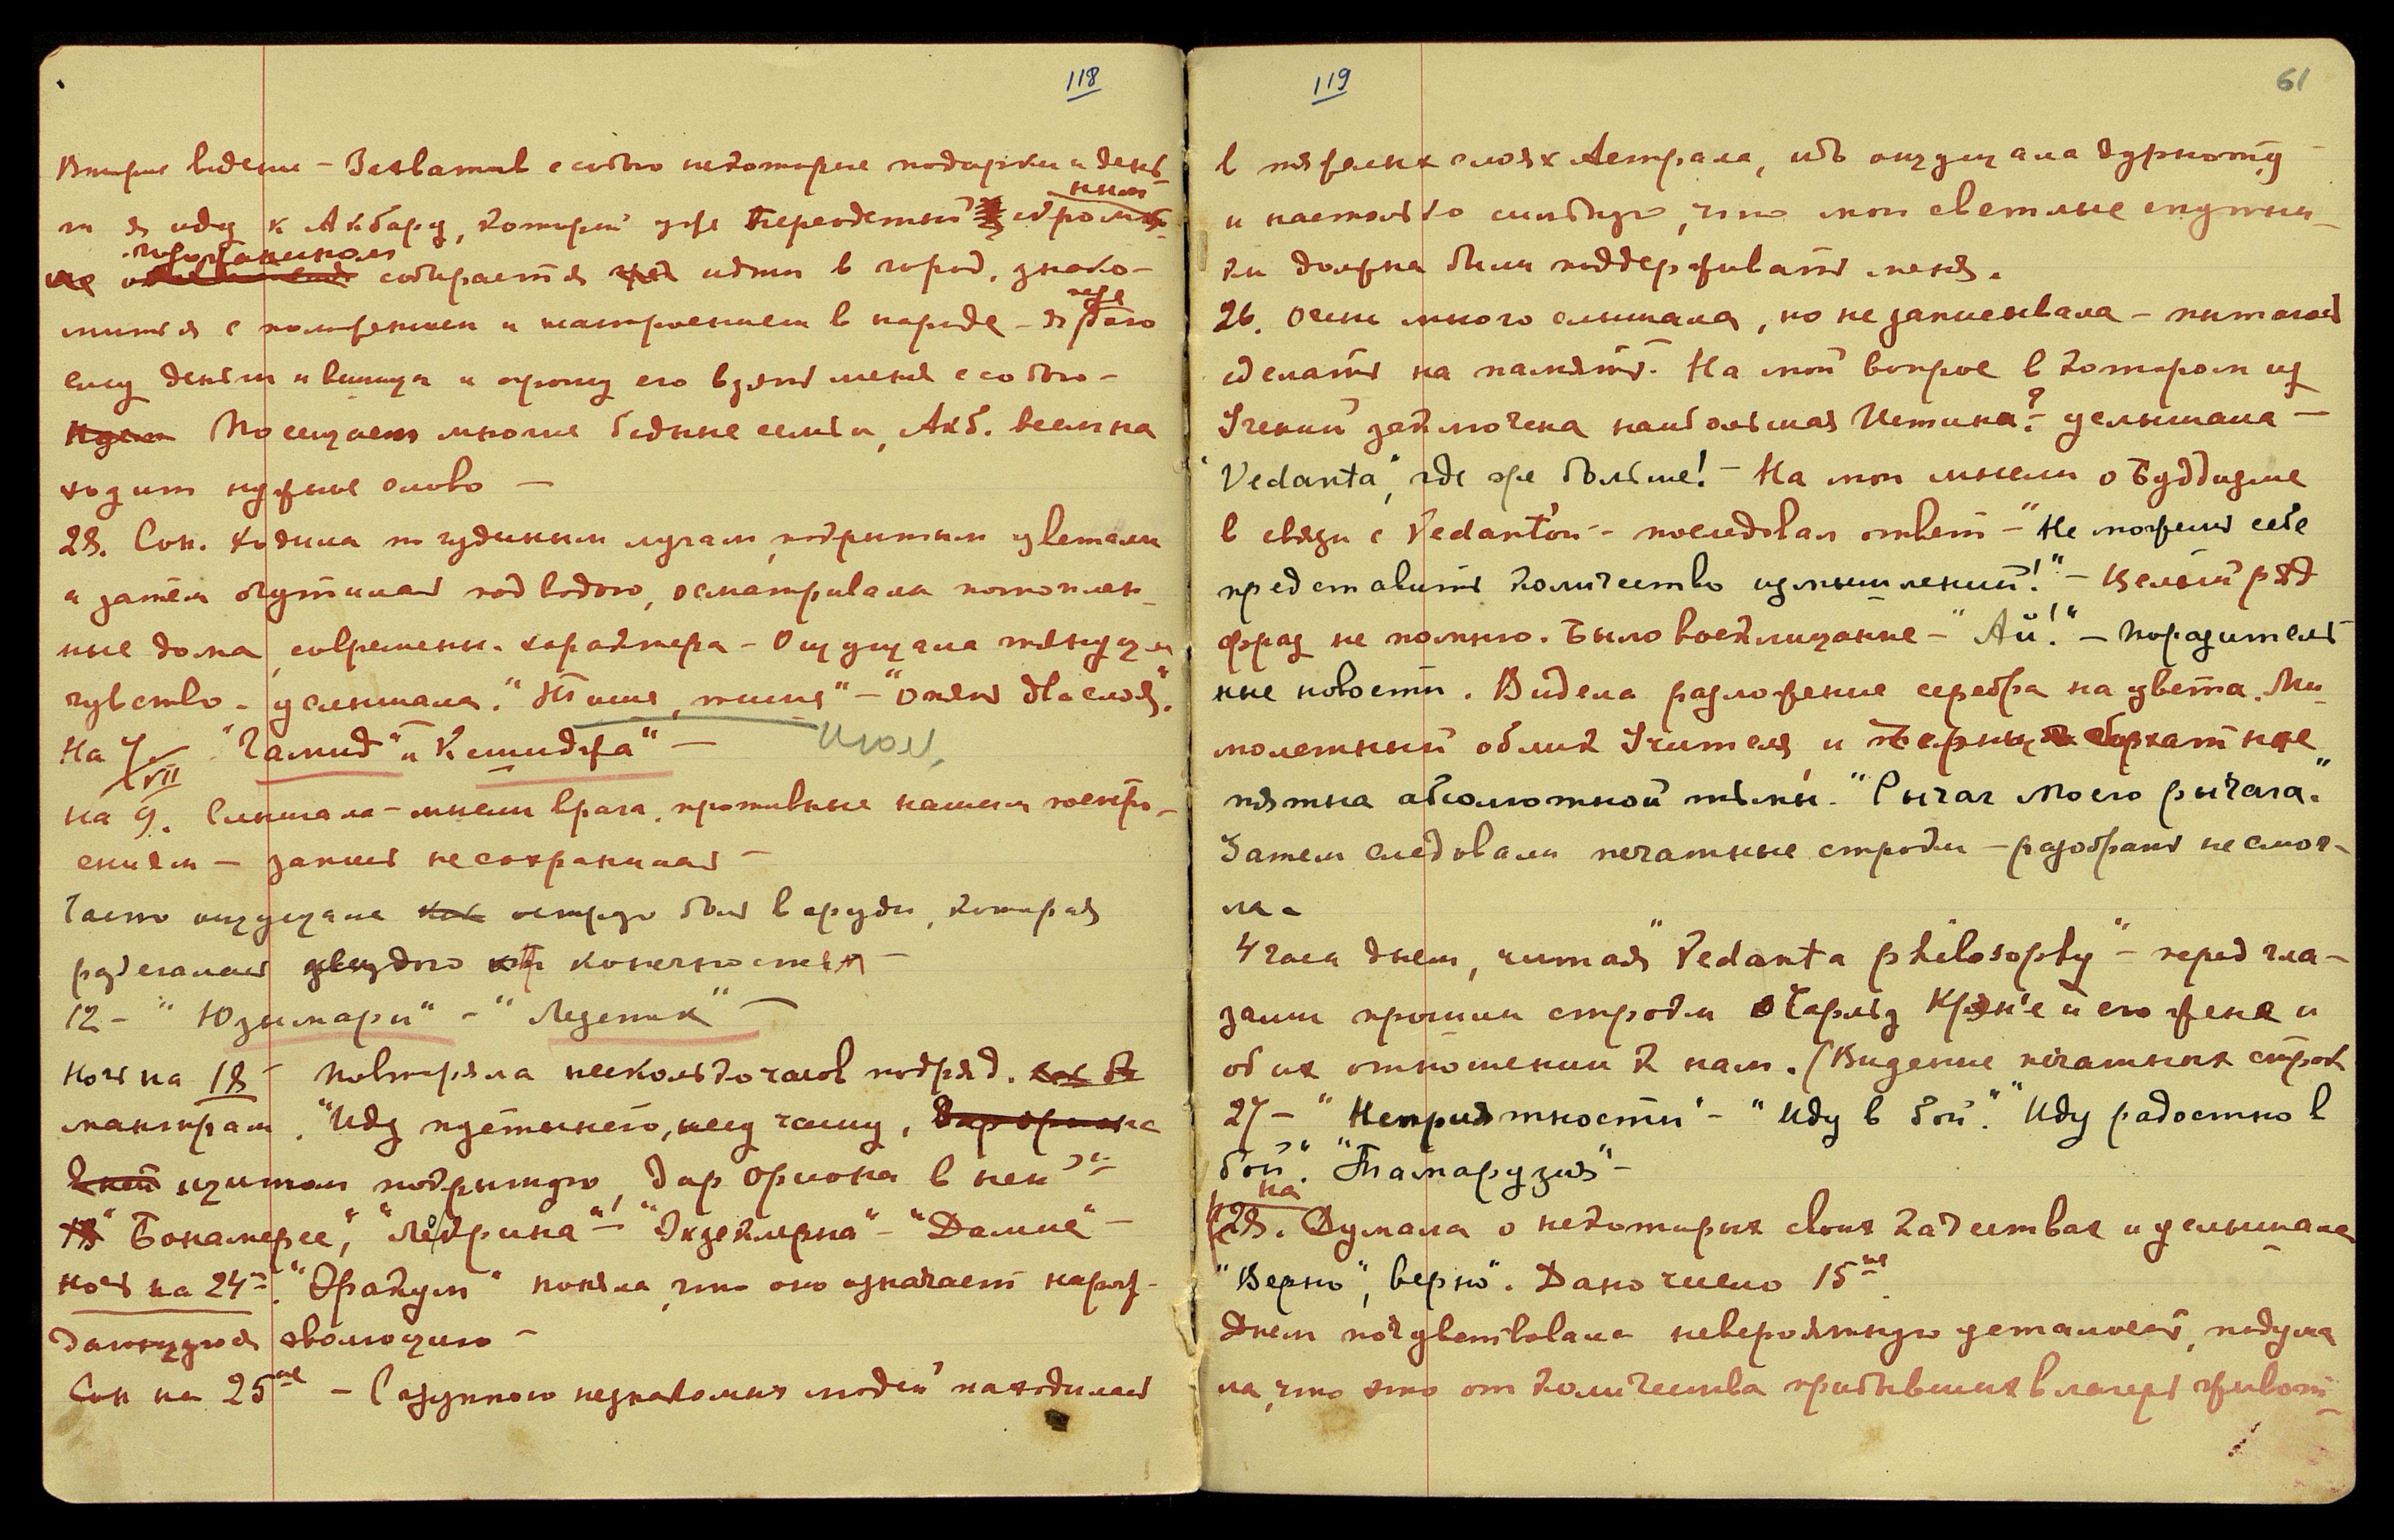 118
Второе видение – Захватив с собою некоторые подарки и день-
ги я иду к Акбару, который уже переодетый скромным
горожанином собирается идти в город, знако-
миться с положением и настроением в народе – я передаю
ему деньги и вещицы и прошу его взять меня с собою –
Посещаем многие бедные семьи, Акб. всем на
ходит нужное слово –
28. Сон. Ходила по чудным лугам, покрытым цветами
и затем очутилась под водою, осматривала потоплен-
ные дома, современн. характера – Ощущала тянущее
чувство – услышала. "Тише, тише" – "Опять два слоя".
На 7/VII "Гамид" и "Кешиджа" – Июль
На 9. Слышала – мнения врага, противные нашим построе-
ениям – запись не сохранилась –
Часто ощущала острую боль в груди, которая
разбегалась по конечностям –
12 – "Юзимари" – "Лезетих" –
Ночь на 18 – повторяла несколько часов подряд.
мантрам. "Иду пустынею, несу чашу,
щитом покрытую, Дар Ориона в ней" –
"Бонамерсе", "Лекрина" – "Экзеклерна" – "Далие" –
Ночь на 24ое. "Фракум" поняла, что оно означает нарож-
дающуюся эволюцию –
Сон на 25ое – С группою незнакомых людей находилась
119
61
в тяжелых слоях Астрала, ибо ощущала дурноту –
и настолько сильную, что мои светлые спутни-
ки должны были поддерживать меня.
26. Очень много слышала, но не записывала – пыталась
сделать на память. На мой вопрос в котором из
Учений заключена наибольшая Истина? – услышала –
"Vedanta", где же больше! – На мои мысли о Буддизме
в связи с Vedanta'ой – последовал ответ – "Не можешь себе
представить количество измышлений!" – Целый ряд
фраз не помню. Было восклицание – "Ай!" – Поразитель
ные новости. Видела разложение серебра на цвета. Ми-
молетный облик Учителя и черные бархатные
пятна абсолютной тьмы. "Рычаг Моего рычага."
Затем следовали печатные строки – разобрать не смог-
ла –
4 часа днем, читая "Vedanta philosophy" – перед гла-
зами прошли строки о Чарльз Крэн'е и его жене и
об их отношении к нам. (Видение печатных строк
27 – "Неприятности" – "Иду в бой." "Иду радостно в
бой". "Тамарузия" –
на
28. Думала о некоторых своих качествах и услышала
"Верно", верно". Дано число 15ое
Днем почувствовала невероятную усталость, подума
ла, что это от количества прибывших в лагерь живот-